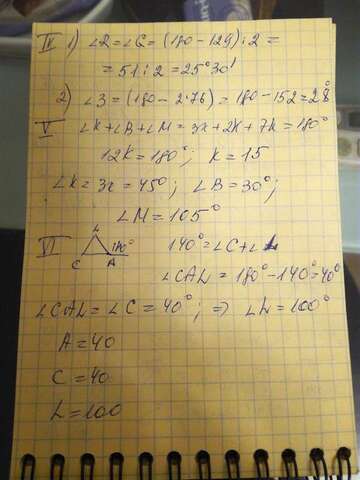 IV 1) ∠R = ∠C = (180 - 129) : 2 =
= 51 : 2 = 25°30'
2) ∠3 = (180 - 2·76) = 180 - 152 = 28°
V ∠K + ∠B + ∠M = 3x + 2K + 7K = 180°
12K = 180°; K = 15
∠K = 3x = 45°; ∠B = 30°;
∠M = 105°
VI L 140° C A 140° = ∠C + ∠L
∠CAL = 180° - 140° = 40°
∠CAL = ∠C = 40°; ⇒ ∠L = 100°
A = 40
C = 40
L = 100